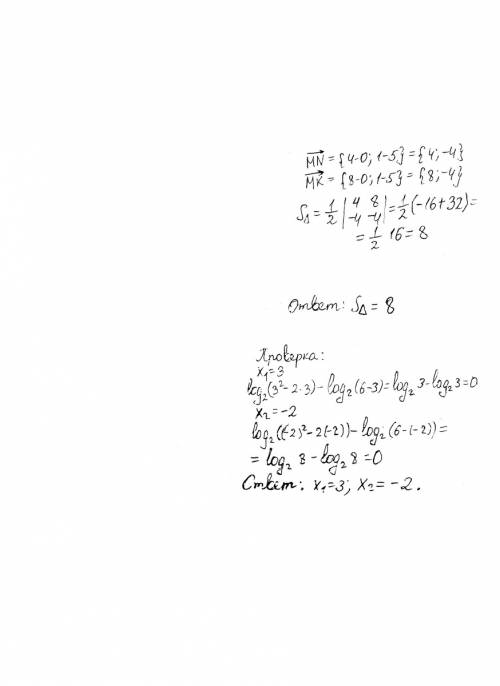 MN = {4-0; 1-5} = {4; -4}
MK = {8-0; 1-5} = {8; -4}
S△ = 1/2 |4 8; -4 -4| = 1/2 (-16+32) =
= 1/2 16 = 8
Ответ: S△ = 8
Проверка:
x₁=3
log₂(3²-2·3)-log₂(6-3)=log₂3-log₂3=0
x₂=-2
log₂((-2)²-2(-2))-log₂(6-(-2))=
= log₂ 8 - log₂ 8 = 0
Ответ: x₁=3; x₂= -2.